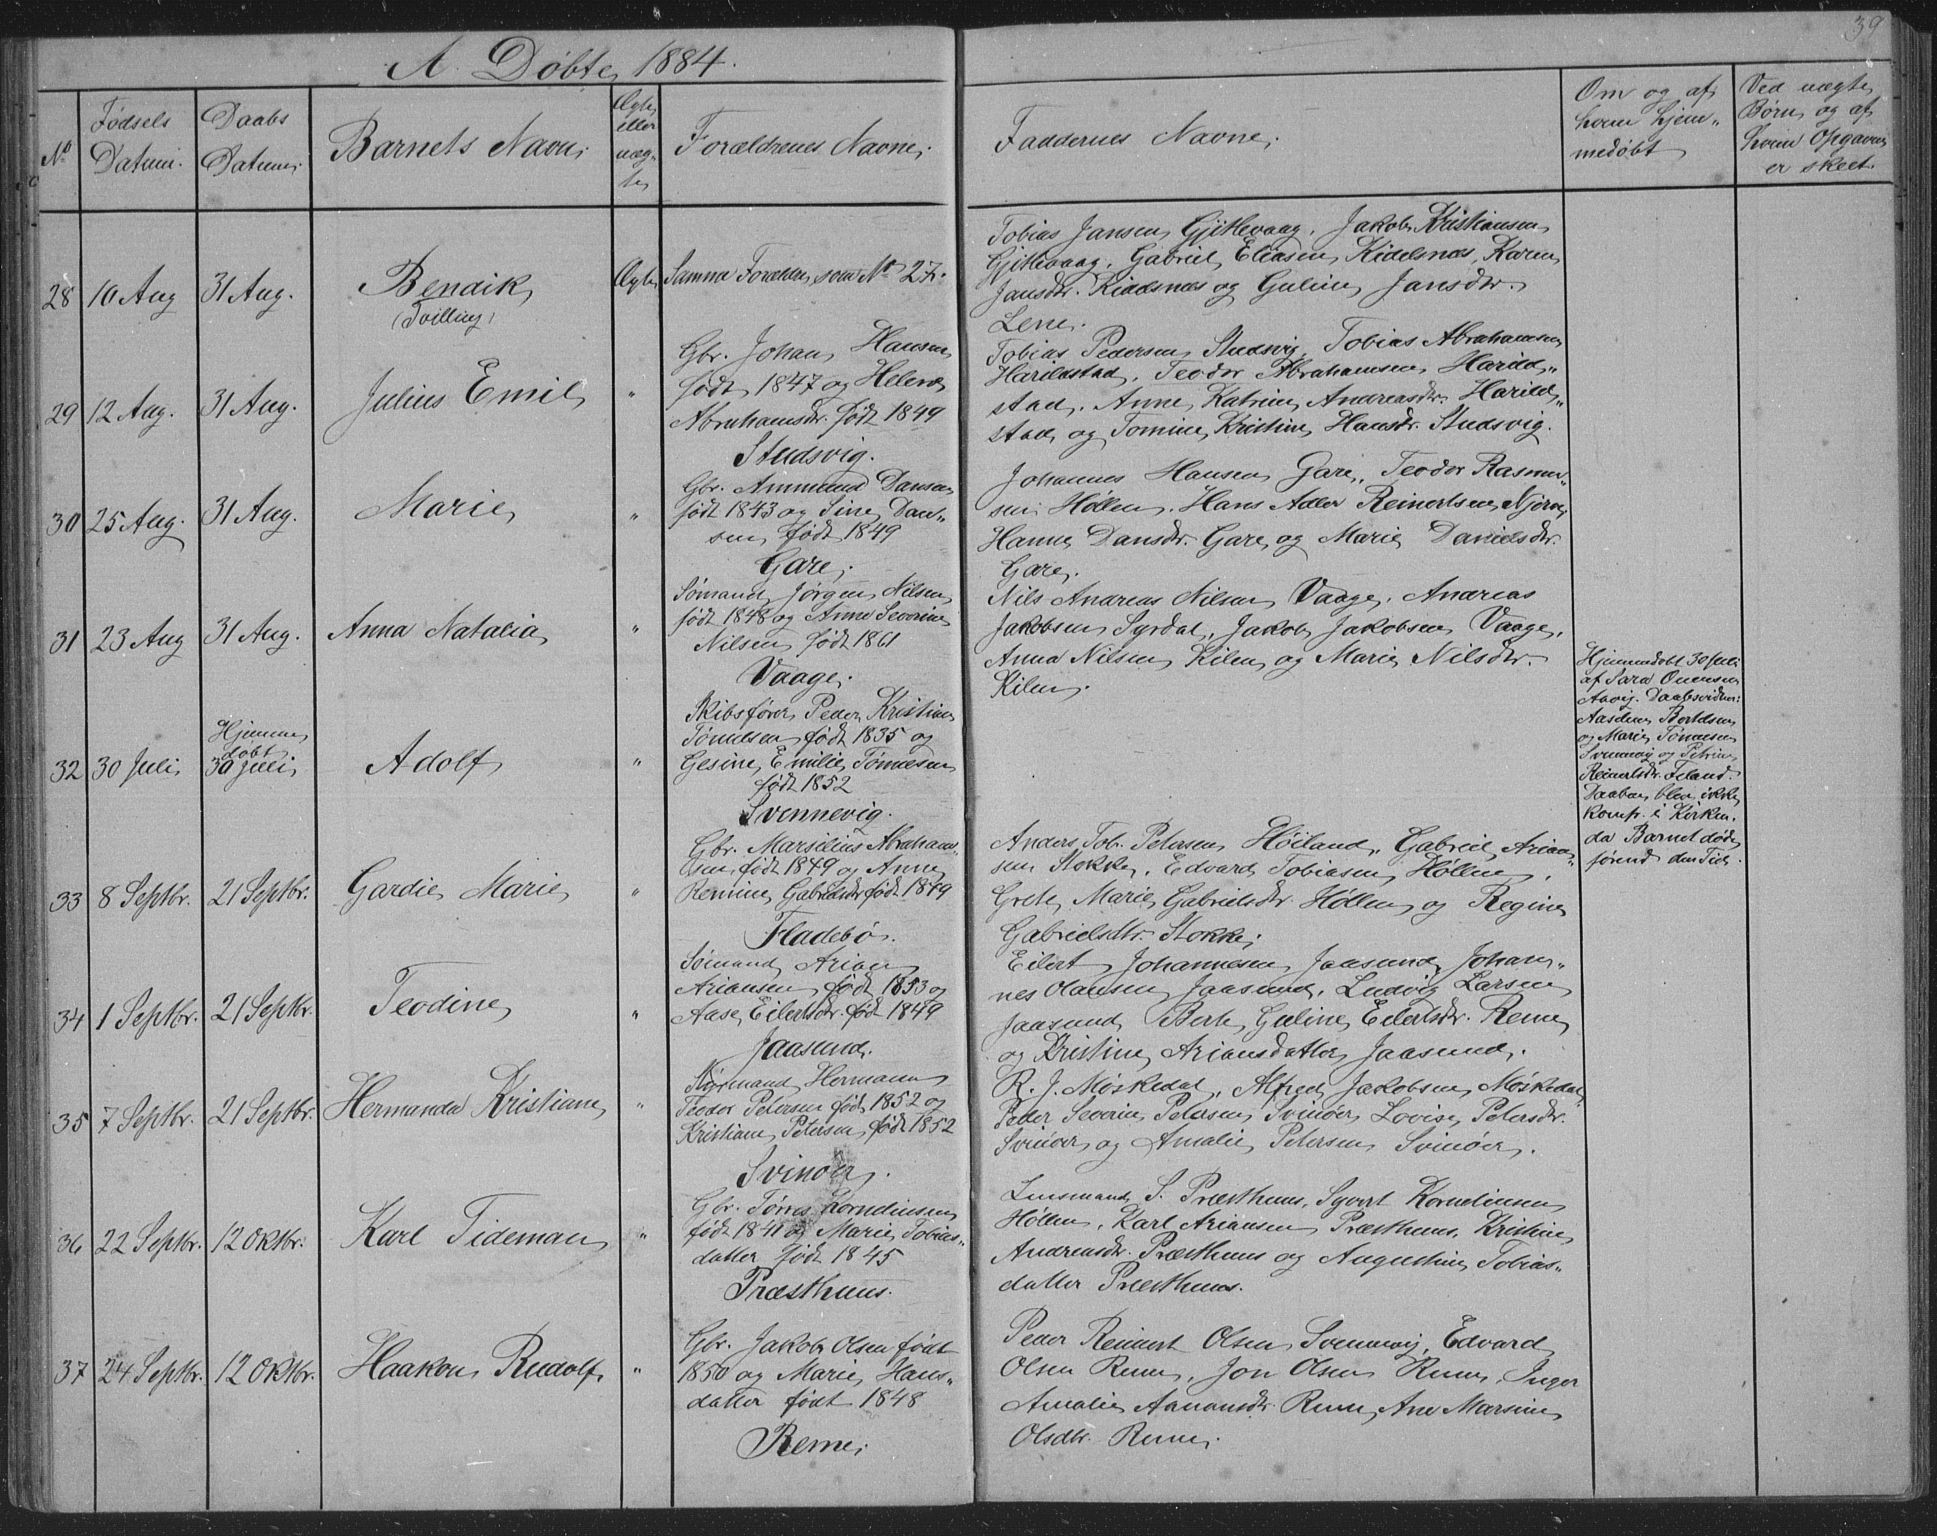 39
A. Døbte, 1884.
No
Fødsels Datum.
Daabs Datum.
Barnets Navn.
Ægte eller uægte
Forældrenes Navne.
Faddernes Navne.
Om og af hvem hjemmedøbt
Ved uægte Børn og af hvem Opgaven er skeet.
28
10 Aug
31 Aug.
Bendik
(Tvilling)
Ægte
Samme Forældre som No 27.
Tobias Jansen Gjitlevaag, Jakob Kristiansen
Gjitlevaag, Gabriel Eliasen Kidelsnæs, Karen
Jansdtr. Kidelsnæs og Guline Jansdtr.
Lene.
29
12 Aug.
31 Aug.
Julius Emil
"
Gbr. Johan Hansen
født 1847 og Helene
Abrahamsdtr. født 1849
Studsvig.
Tobias Pedersen Studsvig, Tobias Abrahamsen
Harildstad, Teodor Abrahamsen Harild„
stad, Anne Katrine Andreasdtr. Harild„
stad og Tomine Kristine Hansdtr. Studsvig.
30
25 Aug.
31 Aug.
Marie
"
Gbr. Ammund Dansen
født 1843 og Sine Dan„
sen født 1849
Gare.
Johannes Hansen Gare, Teodor Rasmu„
sen Høllen, Hans Adler Reinertsen Njerve,
Hanne Dansdtr. Gare og Marie Danielsdtr.
Gare.
31
23 Aug
31 Aug.
Anna Natalia
"
Sømand Jørgen Nilsen
født 1848 og Anne Severine
Nilsen født 1861
Vaage.
Nils Andreas Nilsen Vaage, Andreas
Jakobsen Syrdal, Jakob Jakobsen Vaage,
Anna Nilsen Kilen og Marie Nilsdtr.
Kilen.
32
30 Juli
Hjemme
døbt
30 Juli
Adolf
"
Skibsfører Peder Kristian
Tønnesen født 1835 og
Gesine Emilie Tønnesen
født 1852
Svennevig.
Hjemmedøbt 30 Juli
af Sara Ounensen
Aavig. Daabsvidner:
Aasden Bertelsen
og Marie Tønnesen
Svennevig og Petrine
Reinertsdtr. Feland.
Daaben blev ikke
konfr. i Kirken,
da Barnet døde
førend den Tid.
33
8 Septbr.
21 Septbr.
Gardie Marie
"
Gbr. Marselius Abraham„
sen født 1849 og Anne
Remine Gabrielsdtr. født 1849
Fladebø.
Anders Tob. Petersen Høiland, Gabriel Arian„
sen Stokke, Edvard Tobiasen Høllen,
Grete Marie Gabrielsdtr. Høllen og Regine
Gabrielsdtr. Stokke.
34
1 Septbr.
21 Septbr.
Teodine
"
Sømand Arian
Ariansen født 1853 og
Aase Eilertsdtr. født 1849
Jaasund.
Eilert Johannesen Jaasund, Johan„
nes Olausen Jaasund, Ludvig Larsen
Jaasund, Berte Guline Eilertsdtr. Reme
og Kristine Ariansdatter Jaasund.
35
7 Septbr.
21 Septbr.
Hermanda Kristiane
"
Styrmand Hermann
Teodor Petersen født 1852 og
Kristiane Petersen født 1852
Svinøer.
R. J. Møskedal, Alfred Jakobsen Møskedal,
Peder Severin Petersen Svinøer, Lovise Petersdtr.
Svinøer og Amalie Petersen Svinøer.
36
22 Septbr.
12 Oktbr.
Karl Tideman
"
Gbr. Tørres Korneliusen
født 1841 og Marie Tobias„
datter født 1845
Præsthuus.
Lensmand S. Præsthuus, Syvert Korneliusen
Høllen, Karl Ariansen Præsthuus, Kristine
Andreasdtr. Præsthuus og Augustine Tobias„
datter Præsthuus.
37
24 Septbr.
12 Oktbr.
Haakon Rudolf
"
Gbr. Jakob Olsen født
1850 og Marie Hans„
datter født 1848
Reme.
Peder Reinert Olsen Svennevig, Edvard
Olsen Reme, Jon Olsen Reme, Inger
Amalie Aanansdtr. Reme, Ane Marsine
Olsdtr. Reme.